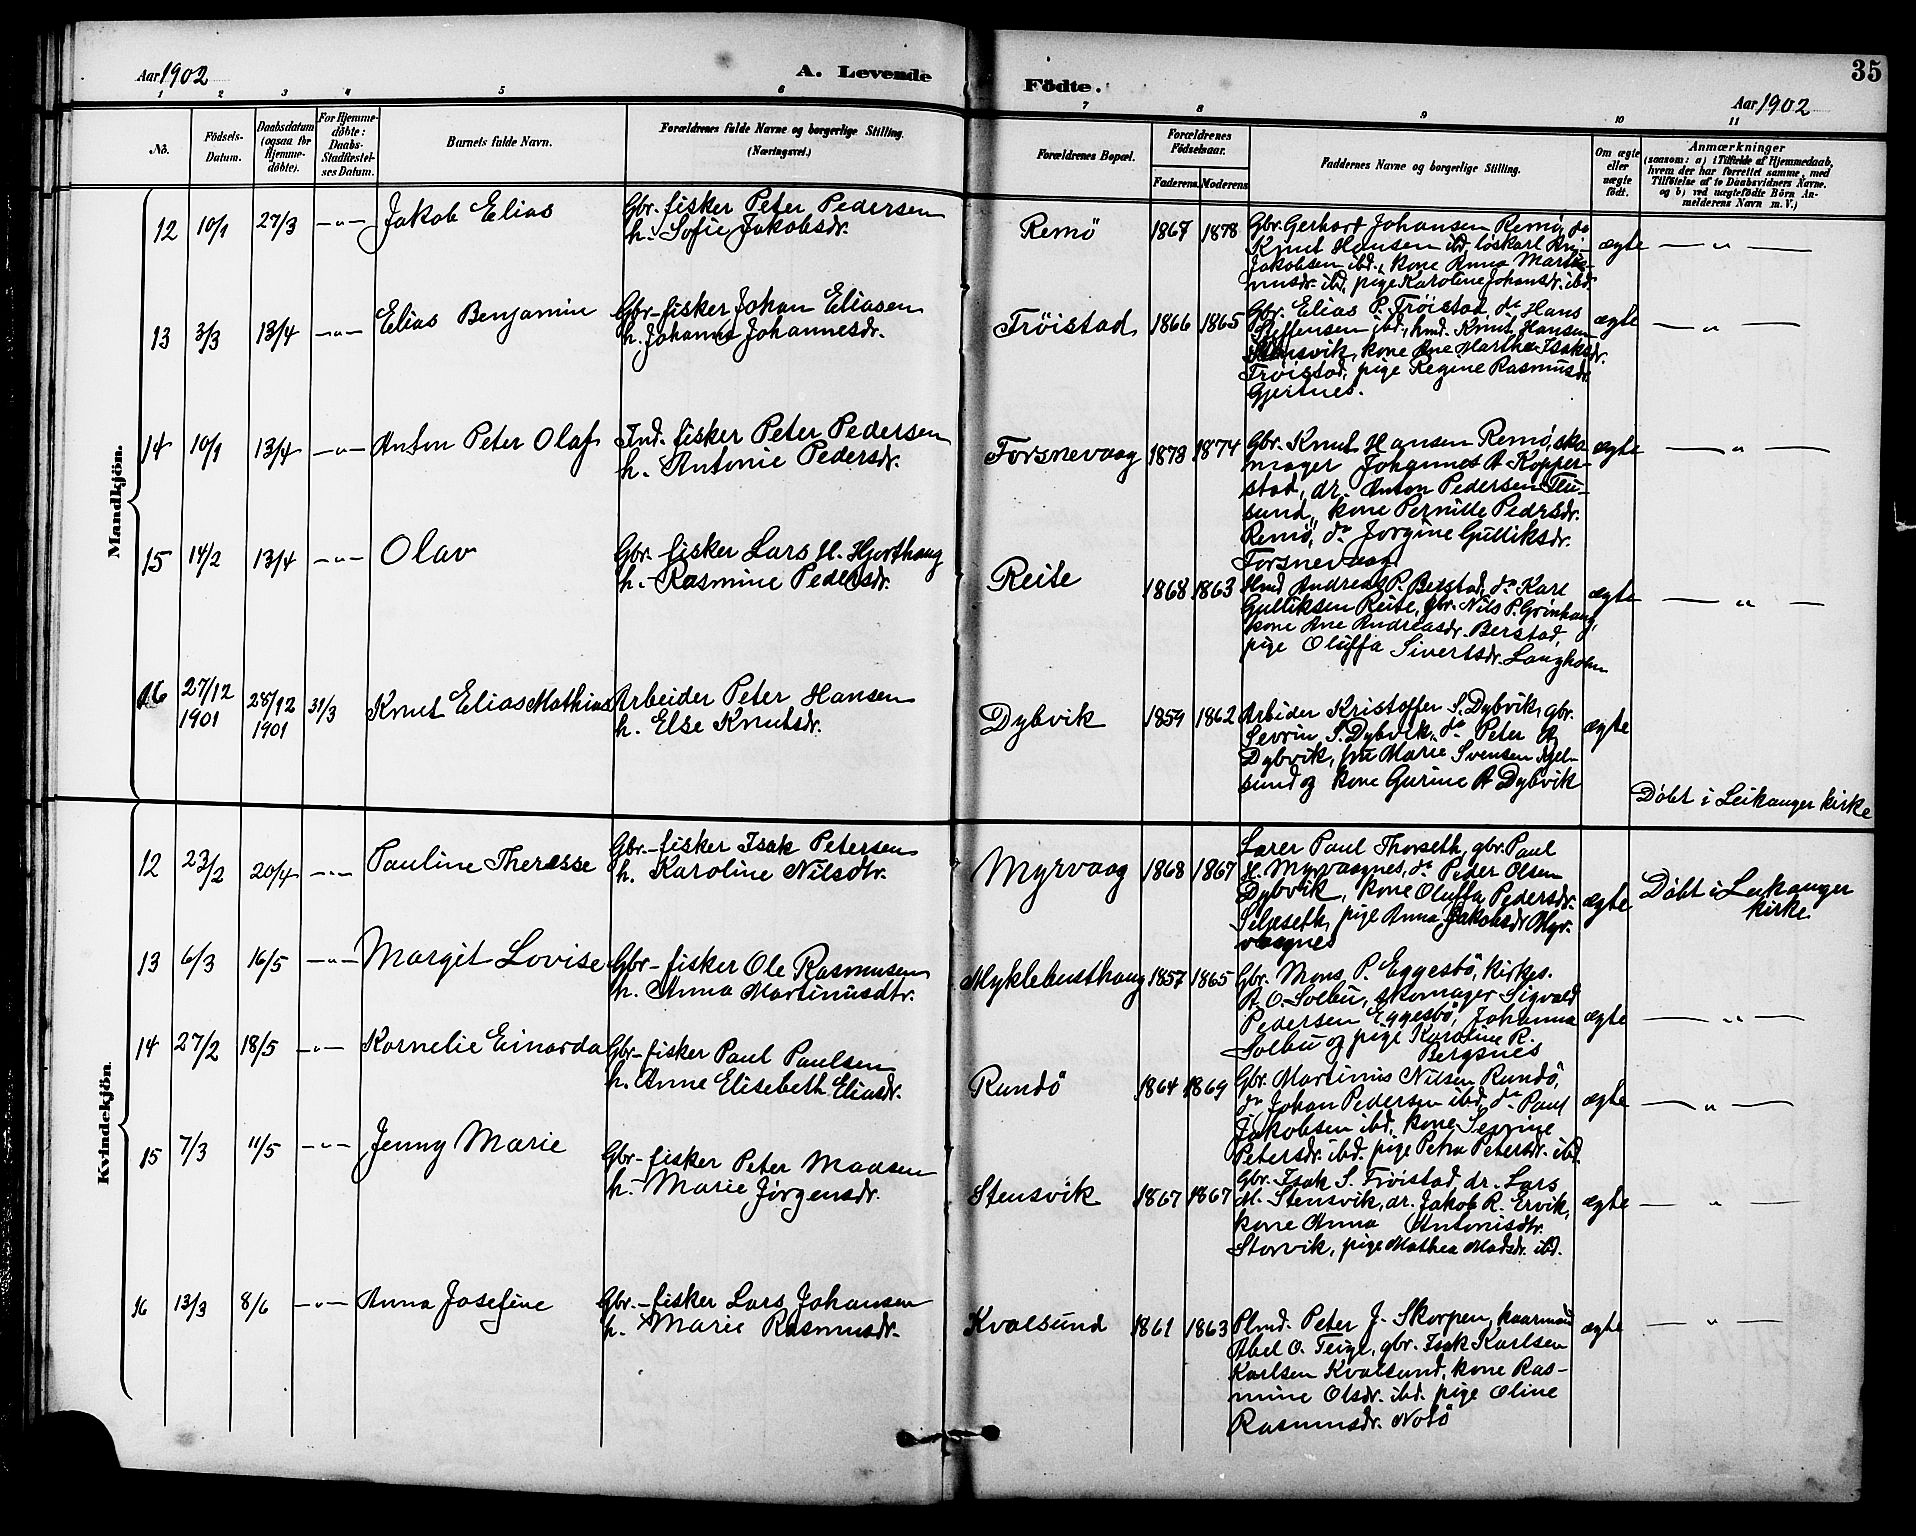 Aar 1902
A. Levende
Födte.
35
Aar 1902
1 2 3 4 5 6 7 8 9 10 11
No.
Födsels-
Datum.
Daabsdatum
(ogsaa for
Hjemme-
döbte).
For Hjemme-
döbte:
Daabs-
Stadfæstel-
ses Datum.
Barnets fulde Navn.
Forældrenes fulde Navne og borgerlige Stilling.
(Næringsvei.)
Forældrenes Bopæl.
Forældrenes
Födselsaar.
Faderens. Moderens
Faddernes Navne og borgerlige Stilling.
Om ægte
eller
uægte
födt.
Anmærkninger
(saasom: a) i Tilfælde af Hjemmedaab,
hvem der har forrettet samme, med
Tilföielse af to Daabsvidners Navne,
og b) ved uægtefödte Börn An-
melderens Navn m. V.)
Mandkjön.
12 10/1 27/3 — " — Jakob Elias
Gbr. fisker Peter Pedersen
h. Sofie Jakobsdr.
Remö 1867 1878
Gbr. Gerhard Johansen Remö, do
Knut Hansen ibd. löskarl
Jakobsen ibd., kone Anna Marti-
nusdr. ibd., pige Karoline Johansdr. ibd.
ægte — " —
13 3/3 13/4 — " — Elias Benjamin
Gbr.-fisker Johan Eliasen
h. Johanna Johannesdr.
Tröistad 1866 1865
Gbr. Elias P. Tröistad, do Hans
Steffensen ibd., hmd. Knut Hansen
Stensvik, kone Ane Martha Isaksdr.
Tröistad, pige Regine Rasmusdr.
Gjertnes.
ægte — " —
14 10/1 13/4 — " — Anton Peter Olaf
Ind. fisker Peter Pedersen
h. Antonie Pedersdr.
Forsnevaag 1873 1874
Gbr. Knut Hansen Remö, sko-
mager Johannes A. Kopper-
stad, dr. Anton Pedersen
sund, kone Pernille Pedrsdr.
Remö, do Jorgine Gulliksdr.
Forsnevaag
ægte — " —
15 14/2 13/4 — " — Olav
Gbr.-fisker Lars H. Hjorthaug
h. Rasmine Pedersdr.
Reite 1868 1863
Hmd Andreas P. Berstad, do Karl
Gulliksen Reite, gbr. Nils P. Grönhaug,
kone Ane Andreasdr. Berstad,
pige Oluffa Sivertsdr. Langholm
ægte — " —
16 27/12 1901 28/12 1901 31/3 Knut Elias Mathias
Arbeider Peter Hansen
h. Else Knutsdr.
Dybvik 1859 1862
Arbider Kristoffer S. Dybvik, gbr.
Sevrin S. Dybvik, do Peter A
Dybvik, fru Marie Svensen Kjel-
sund og kone Gurine A Dybvik
ægte
Döbt i Leikanger kirke
Kvindekjön.
12 23/2 20/4 — " — Pauline Theresse
Gbr.-fisker Isak Petersen
h. Karoline Nilsdtr.
Myrvaag 1868 1867
Lærer Paul Thorseth, gbr. Paul
H. Myrvaagnes, do Peder Olsen
Dybvik, kone Oluffa Pedersdr.
Selseseth, pige Anna Jakobsdr Myr-
vaagnes
ægte
Döbt i Leikanger
kirke
13 6/3 16/5 — " — Margit Lovise
Gbr-fisker Ole Rasmusen
h. Anna Martinusdtr.
Myklebusthaug 1857 1865
Gbr. Mons P. Eggesbö, kirkes.
A. O. Solbu, skomager Sigvald
Pedersen Eggesbö, Johanna
Solbu og pige Karoline R.
Bergsnes
ægte — " —
14 27/2 18/5 — " — Kornelie Einarda
Gbr-fisker Paul Paulsen
h. Anne Elisebeth Eliasdr.
Rundö 1864 1869
Gbr. Martinus Nilsen Rundö,
do Johan Pedersen ibd, do Paul
Jakobsen ibd, kone Sevrine
Petersdr. ibd. pige Petra Petersdr. ibd.
ægte — " —
15 7/3 11/5 — " — Jenny Marie
Gbr-fisker Peter Madsen
h. Marie Jörgensdr.
Stensvik 1867 1867
Gbr. Isak S. Tröistad, dr. Lars
M. Stensvik, dr. Jakob R. Ervik,
kone Anna Antonisdtr.
Storvik, pige Mathea Madsdr. ibd.
ægte — " —
16 13/3 8/6 — " — Anna Josefine
Gbr.-fisker Lars Johansen
h. Marie Rasmusdr.
Kvalsund 1861 1863
Plmd. Peter J. Skorpen, kaarmand
Abel O. Teige, gbr. Isak Karlsen
Karlsen Kvalsund, kone Ras-
mine Olsdr. ibd. pige Oline
Rasmusdr. Notö
ægte — " —